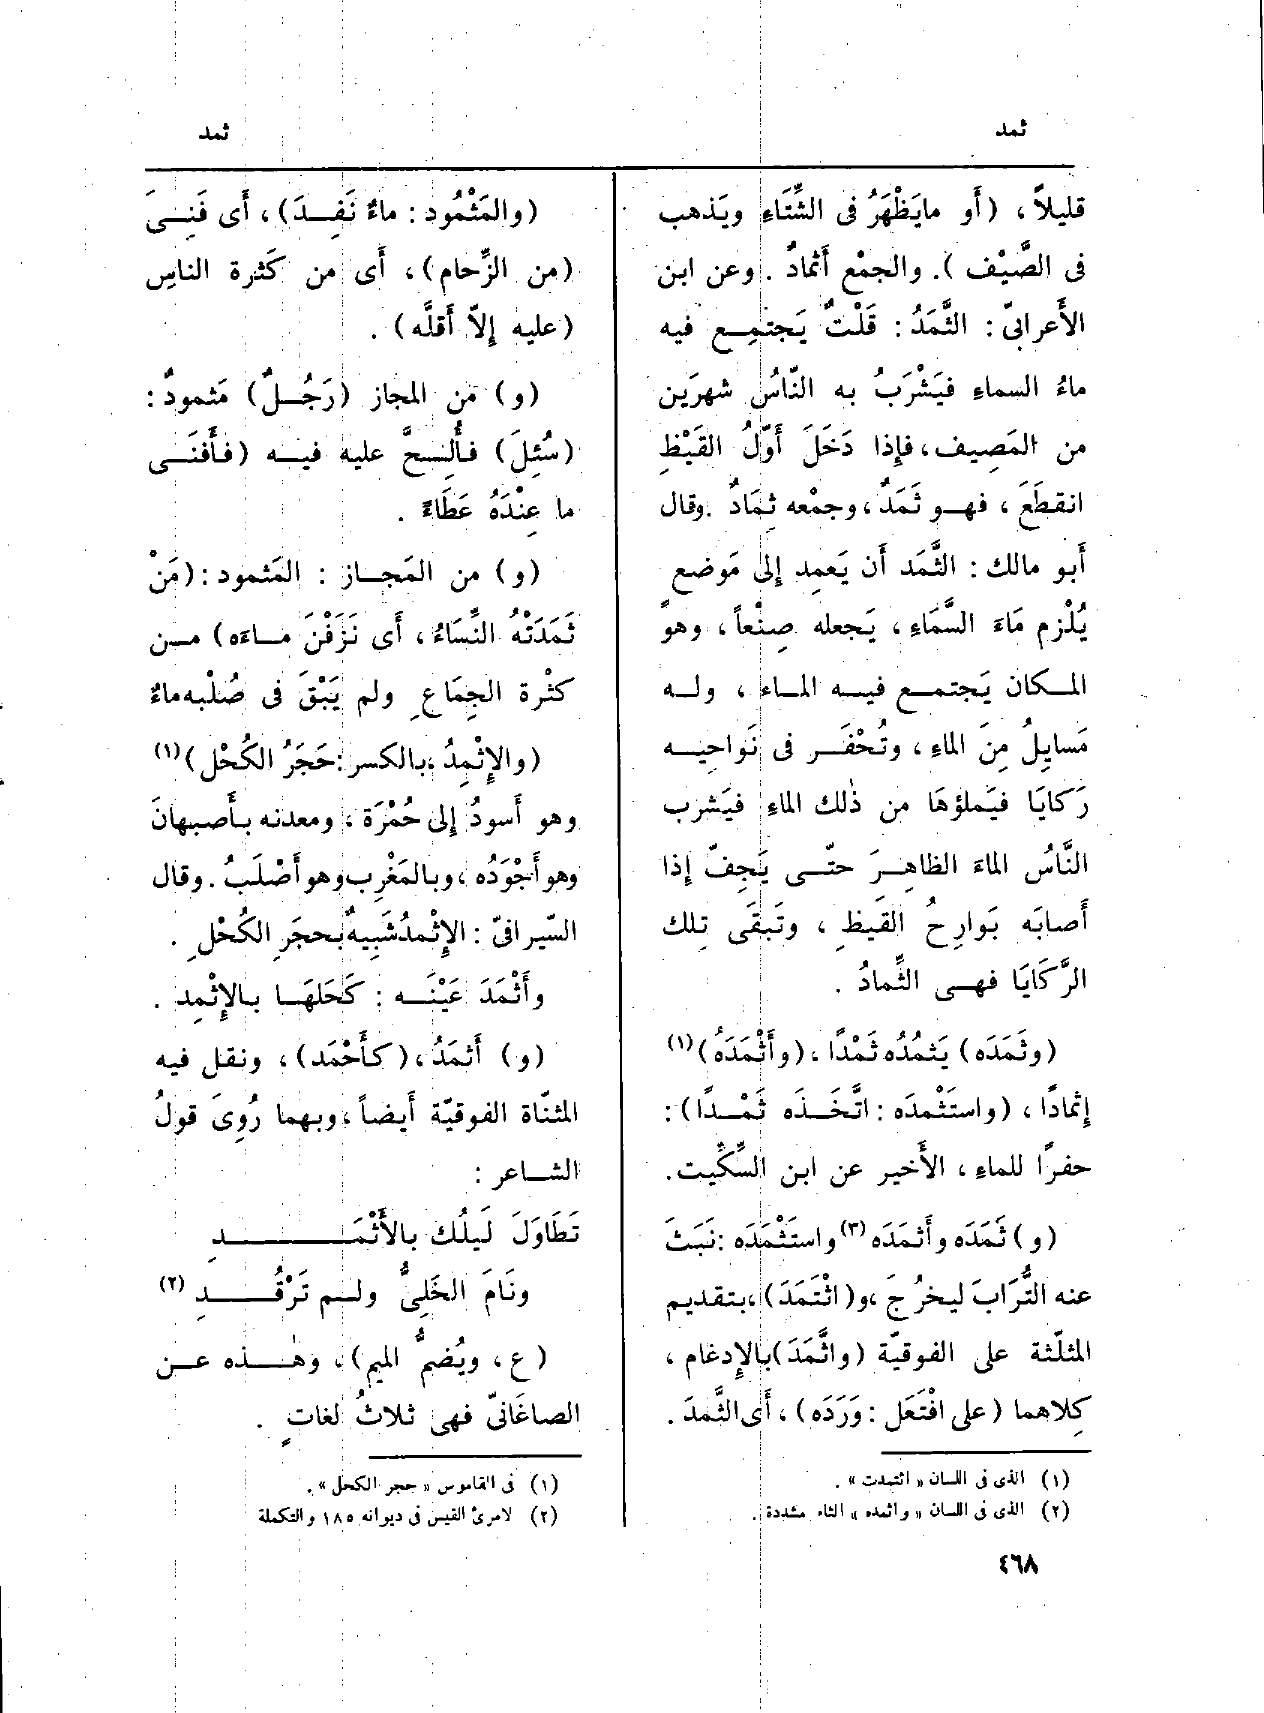 ثمد
ثمد
قليلاً ، (أو مايَظْهَرُ فى الشِّتَاءِ ويَذهب
فى الصَّيْف ). والجمْع أَثمادٌ . وعن ابن
الأَعرابىّ : الثَّمَدُ : قَلْتٌ يَجتمِـع فيه
ماءُ السماءِ فيَشْرَبُ به النّاسُ شهرَين
من المَصِيف، فإِذا دَخَلَ أَوّلُ القَيْظِ
انقطَعَ ، فهـو ثَمَدٌ ، وجمْعه ثِمَادٌ .وقال
أَبو مالك : الثَّمَد أَن يَعمِد إِلى مَوضع
يُلْزم مَاءَ السَّمَاءِ ، يَجعله صِنْعاً ، وهو
المـكان يَجتمـع فيـه المـاء ، ولـه
مَسايِلُ مِنَ الماءِ ، وتُحْفَـر فى نَواحِيـه
رَكايَا فيَملؤهَا من ذٰلك الماءِ فيَشرب
النَّاسُ الماءَ الظاهِـرَ حتّـى يَجِفّ إِذا
أَصابَه بَوارِحُ القَيظِ ، وتَبقَى تِلك
الرَّكَايَا فهـى الثِّمادُ .
(وثَمَدَه) يَثمُدُه ثَمْدًا ، (وأَثْمَدَهُ)(١)
إِثمادًا ، (واستَثْمدَه : اتَّخَـذَه ثَمْـدًا) :
حفرًا للماءِ ، الأَخير عن ابن السِّكِّيت.
(و) ثَمَدَه وأَثمَدَه(٣) واستَثْمَدَه :نَبَثَ
عنه التُّرَابَ ليخرُجَ ،و( اثْتَمَدَ)،بتقديم
المثلّثة على الفوقيّة (واثَّمَدَ)بالإِدغام ،
كِلاهما (على افْتَعَل : وَرَدَه) ، أَى الثَّمدَ .
(١) الذى فى اللسان « اثتمدت » .
(٢) الذى فى اللسان « واثمده » الثاء مشددة .
٤٦٨
(والمَثْمُود : ماءٌ نَفِـدَ) ، أَى فَنِـىَ
(من الزِّحام)، أَى من كَثرة الناسِ
(عليه إِلاّ أَقلَّه) .
(و) مَن المجاز (رَجُـلٌ) مَثمودٌ :
(سُئِلَ) فأُلِـحَّ عليه فيـه (فأَفنَـى
ما عِنْدَهُ عَطَاءً .
(و) من المَجـاز : المَثمود :(مَنْ
ثَمَدَتْهُ النِّسَاءُ ، أَى نَزَفْنَ مـاءَه) مـن
كثْرة الجِمَاع ِ ولم يَبْقَ فى صُلْبه ماءٌ
(والإِثْمِدُ ،بالكسر :حَجَرُ الكُحْل)(١)
وهو أَسودُ إِلى حُمْرَة ، ومعدنه بأَصبهانَ
وهو أَجْوَدُه ، وبالمَغْرِب وهو أَصْلَبُ . وقال
السّيرافىّ : الإِثْمدُ شَبِيهٌ بحجَرِ الكُحْلِ .
وأَثْمَدَ عَيْنَـه : كَحَلهَـا بالإِثْمِد .
(و) أَثمَدُ ،(كأَحْمَد)، ونقل فيه
المثنّاة الفوقيّة أَيضاً ، وبهما رُوِىَ قولُ
الشـاعر :
تَطَاوَلَ لَيلُك بالأَثْمَـــــدِ
ونَامَ الخَلِىُّ ولـم تَرْقُـــدِ (٢)
(ع ، ويُضمُّ الميم)، وهٰـذه عـن
الصاغَانىّ فهى ثلاثُ لغاتٍ .
(١) فى القاموس « حجر الكحل » .
(٢) لامرئ القيس فى ديوانه ١٨٥ والتكملة